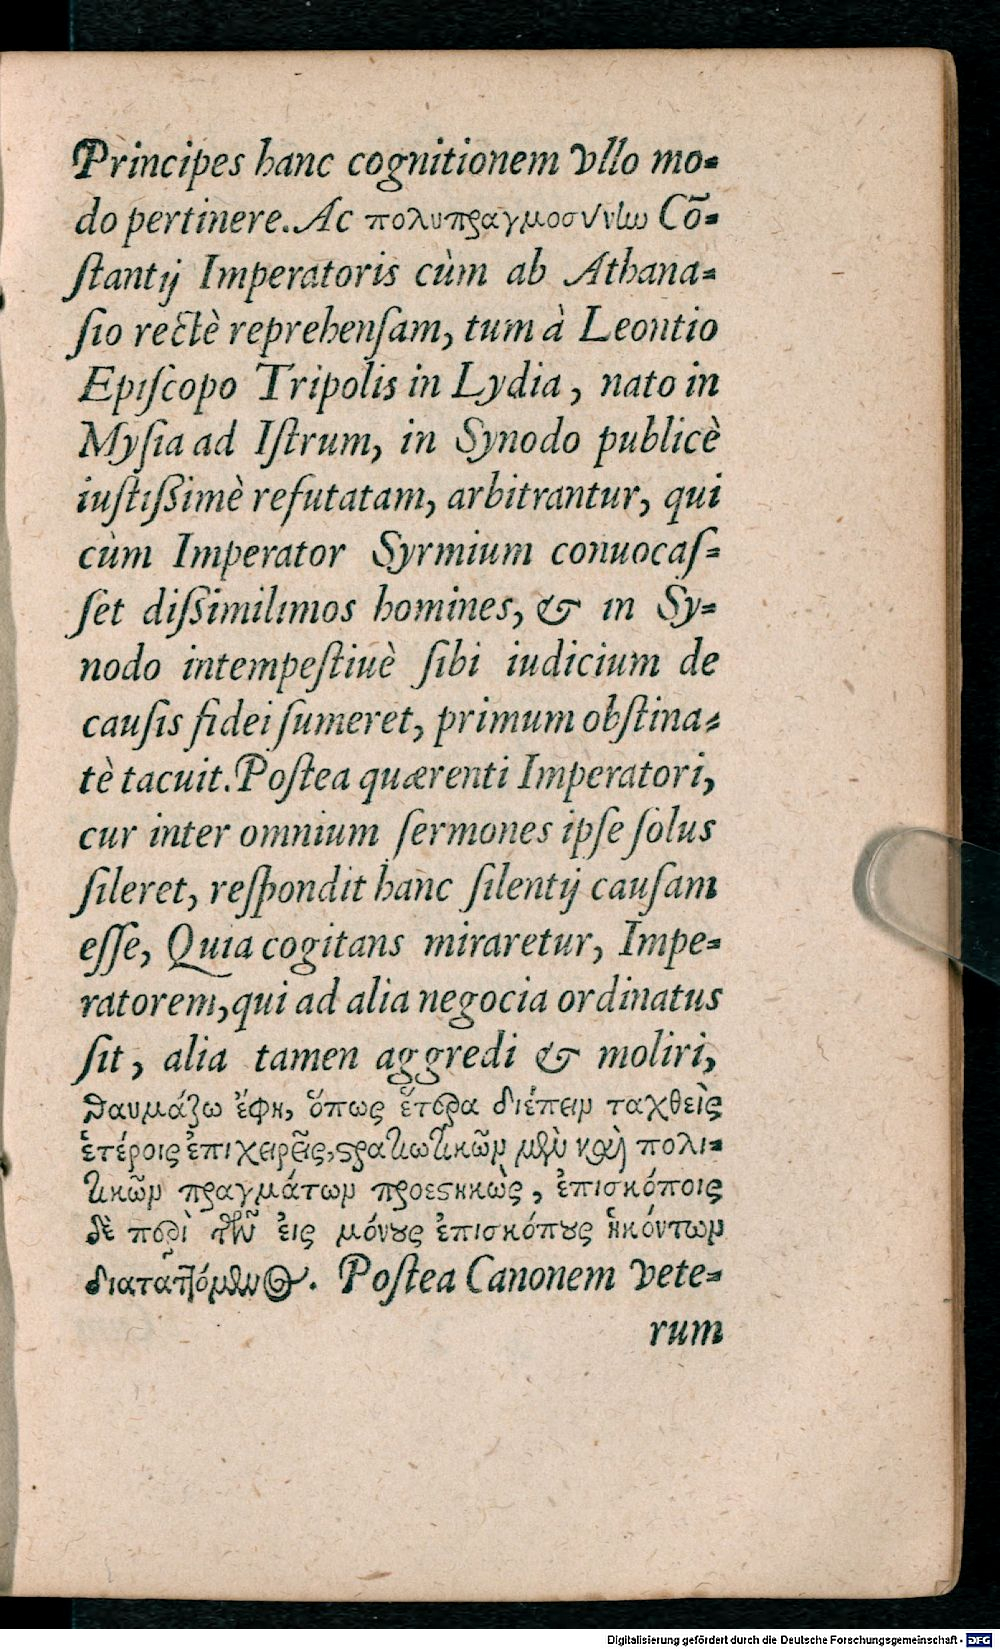 Principes hanc cognitionem vllo mo-
do pertinere. Ac πολυπραγμοσύνην Cõ-
ſtantij Imperatoris cùm ab Athana-
ſio rectè reprehenſam, tum à Leontio
Epiſcopo Tripolis in Lydia, nato in
Myſia ad Iſtrum, in Synodo publicè
iuſtißimè refutatam, arbitrantur, qui
cùm Imperator Syrmium conuocaſ-
ſet dißimilimos homines, & in Sy-
nodo intempeſtiuè ſibi iudicium de
cauſis fidei ſumeret, primum obſtina-
tè tacuit. Poſtea quærenti Imperatori,
cur inter omnium ſermones ipſe ſolus
ſileret, reſpondit hanc ſilentij cauſam
eſſe, Quia cogitans miraretur, Impe-
ratorem, qui ad alia negocia ordinatus
ſit, alia tamen aggredi & moliri,
θαυμάζω ἔφη, ὅπως ἕτερα διέπειν ταχθεὶς
ἑτέροις ἐπιχειρεῖς, στρατιωτικῶν μὲν καὶ πολι-
τικῶν πραγμάτων προεστηκὼς, ἐπισκόποις
δὲ περὶ τῶν εἰς μόνους ἐπισκόπους ἡκόντων
διαταττόμενος. Poſtea Canonem vete-
rum
Digitalisierung gefördert durch die Deutsche Forschungsgemeinschaft - DFG